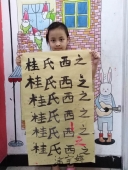 桂氏西之
桂氏西之
桂氏西之
桂氏西之
桂氏西之
桂氏西之